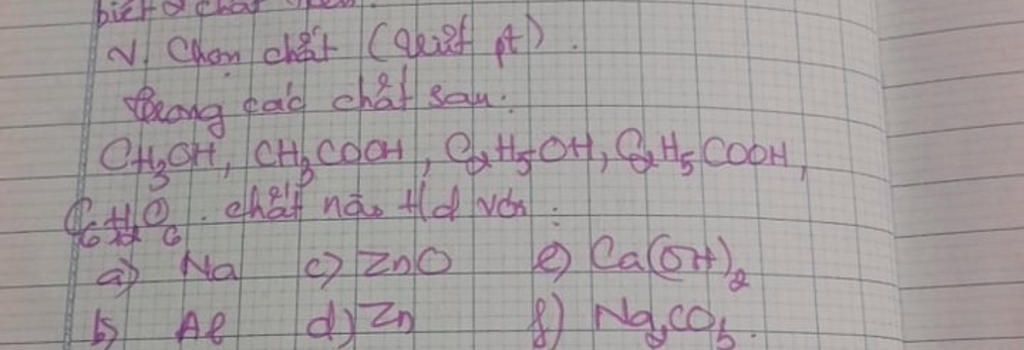 biết
V. Chọn chất (viết pt).
Trong các chất sau:
CH₃OH, CH₃COOH, C₂H₅OH, C₂H₅COOH,
C₆H₁₂O₆. chất nào t/d với:
a) Na c) ZnO e) Ca(OH)₂
b) Al d) Zn f) Na₂CO₃.